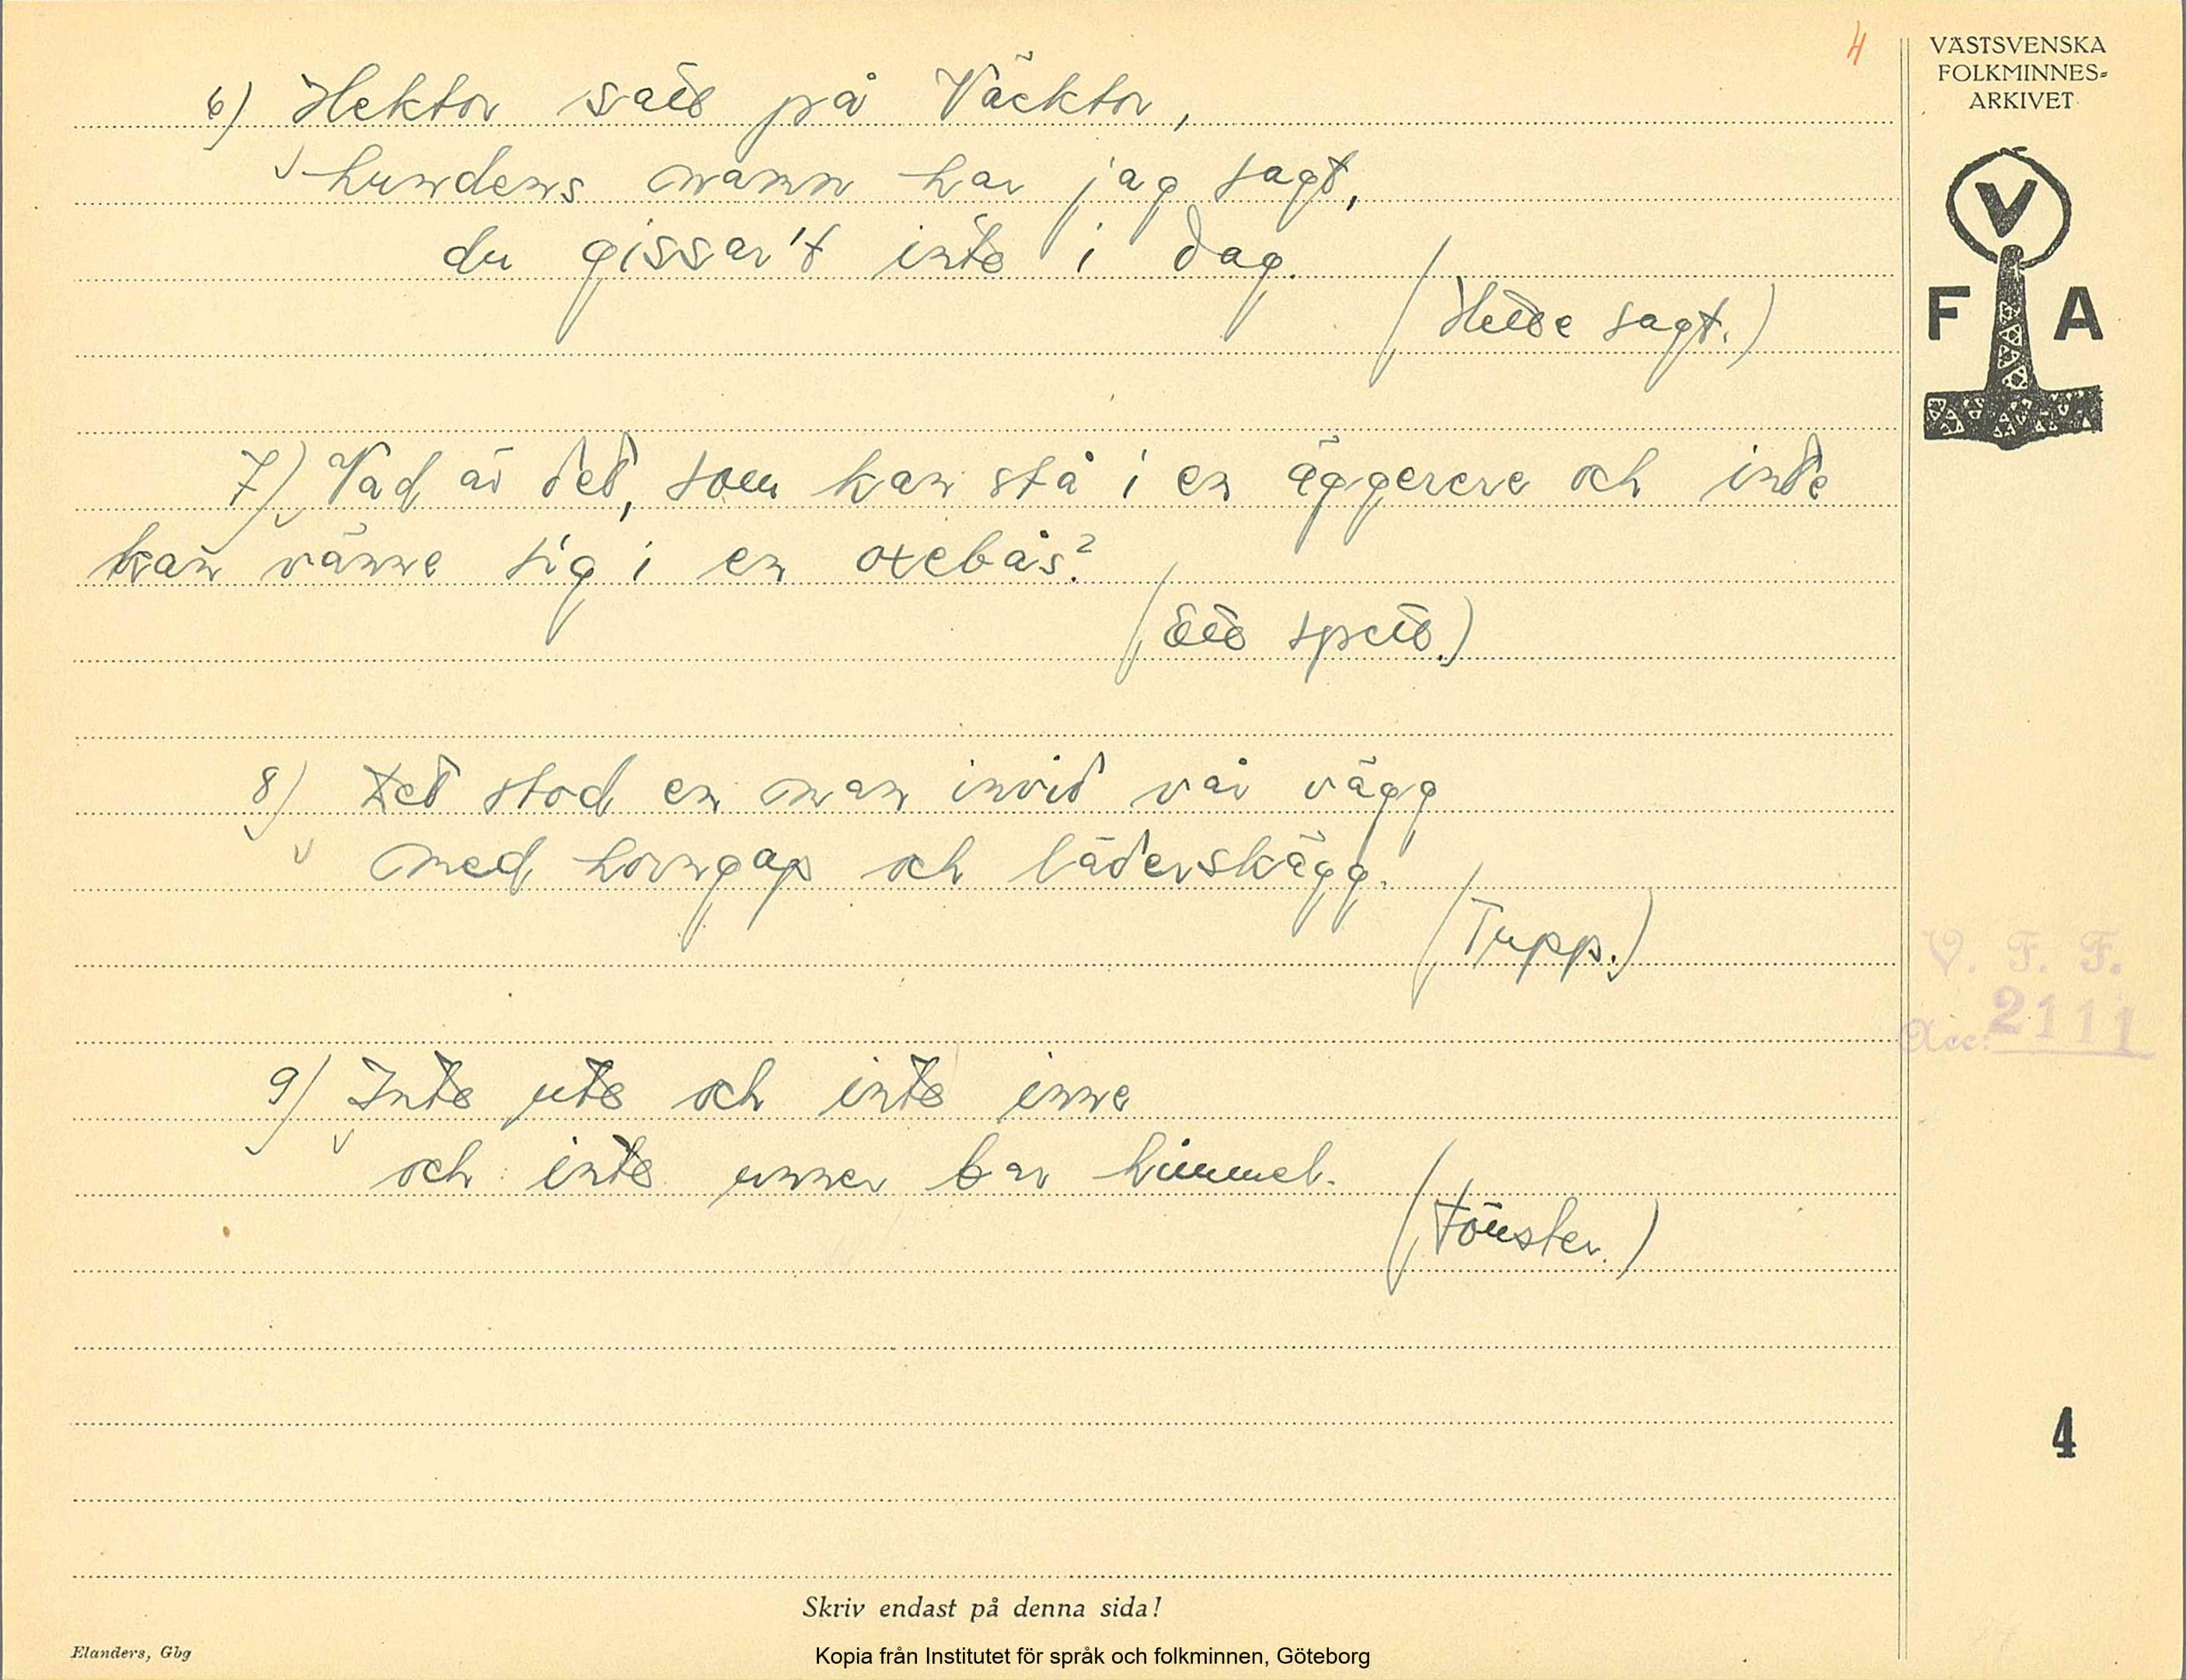 4
VÄSTSVENSKA
FOLKMINNES=
ARKIVET
V
F A
6) Hektor satt på Väcktor,
hundens namn har jag sagt,
du gissar't inte i dag.
(Hette sagt.)
7) Vad är det, som kan stå i en äggerere och inte
kan vänne sig i en oxebås?
(Ett spett.)
8) Det stod en man invid vår vägg
med horngap och läderskägg.
(Tupp.)
V. F. F.
Acc: 2111
9) Inte ute och inte inne
och inte unner bar himmel.
(Fönster.)
4
Skriv endast på denna sida!
Elanders, Gbg
Kopia från Institutet för språk och folkminnen, Göteborg